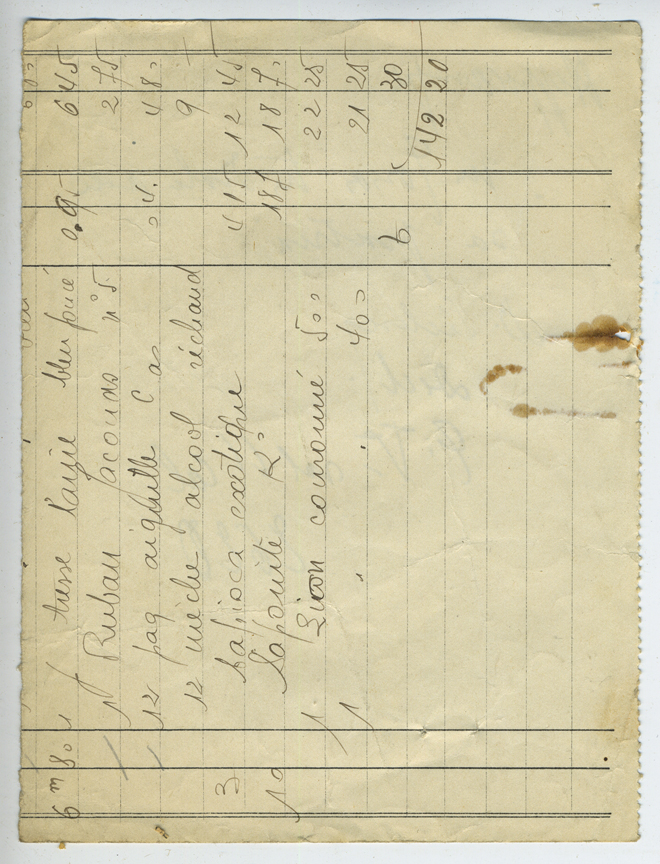 6m80 1 tresse large bleu foncé 0.95 6 45
1 Ruban jaconas n°5 2 75
12 paq aiguille C as 0 4. 4 80
12 mèche alcool réchaud 9
3 tapioca exotique 4 15 12 45
10 Saponite K° 187 18 70
1 couronné 500 22 25
1 " 400 21 25
6 30
142 20